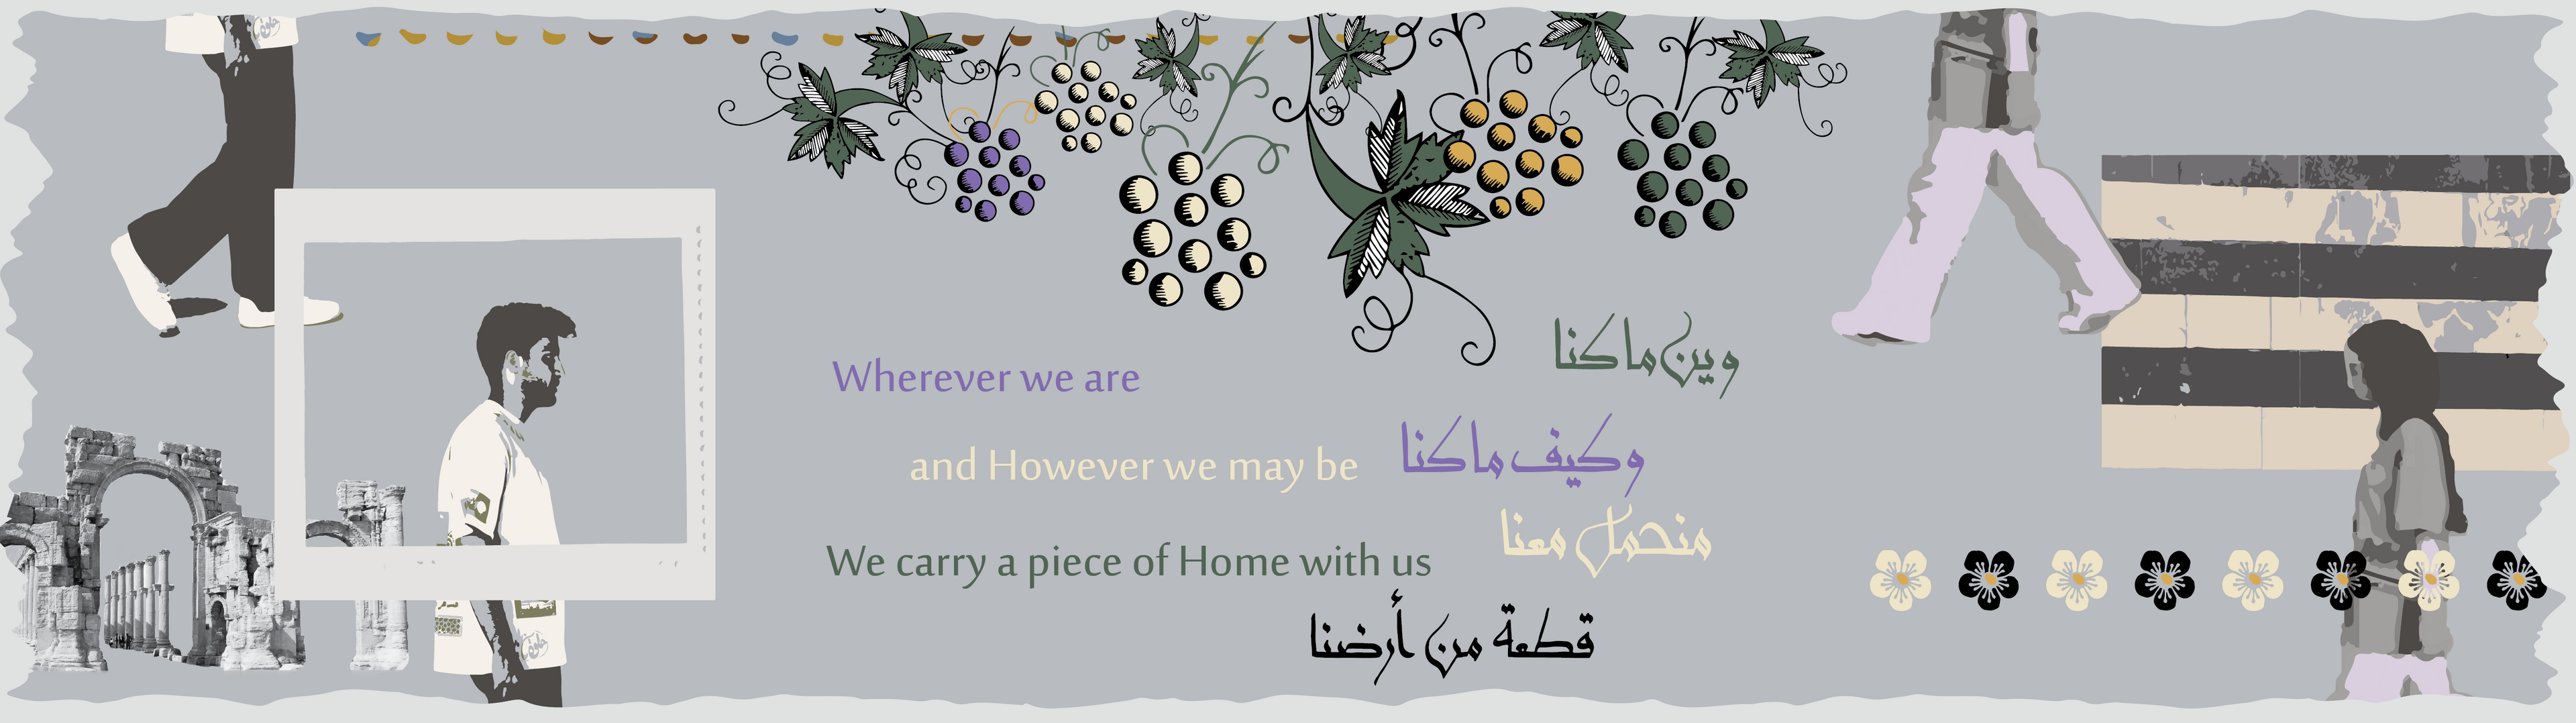 Wherever we are
and However we may be
We carry a piece of Home with us
وين ما كنا
وكيف ما كنا
منحمل معنا
قطعة من أرضنا